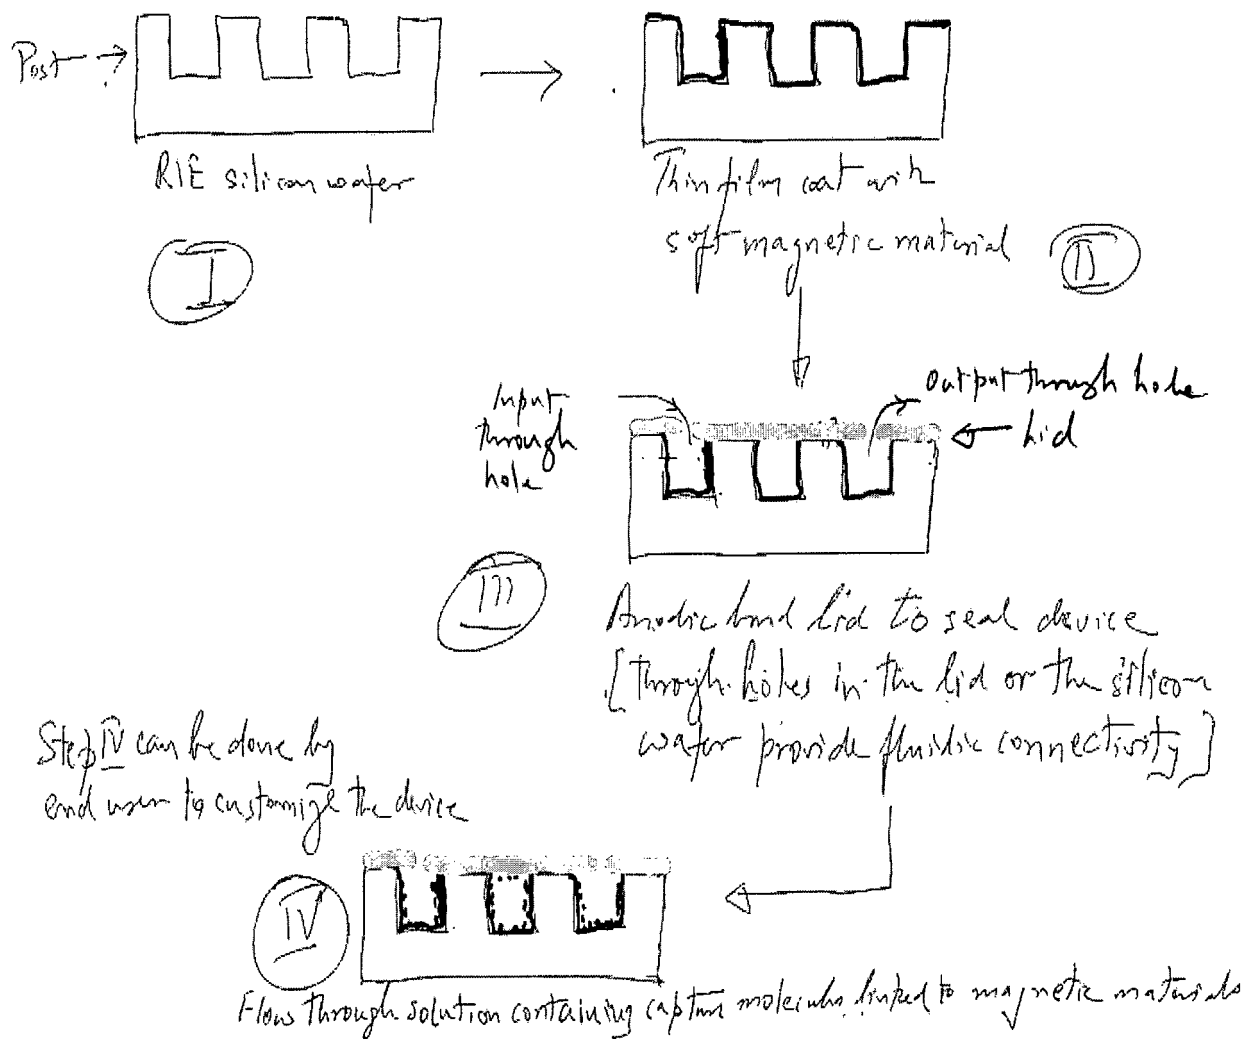 Post
RIE silicon wafer
I
Thin film coat with
soft magnetic material
II
Input
through
hole
Output through hole
Lid
III
Anodic bond lid to seal device
[through holes in the lid or the silicon
wafer provide fluidic connectivity]
Step IV can be done by
end user to customize the device
IV
Flow through solution containing capture molecules linked to magnetic materials